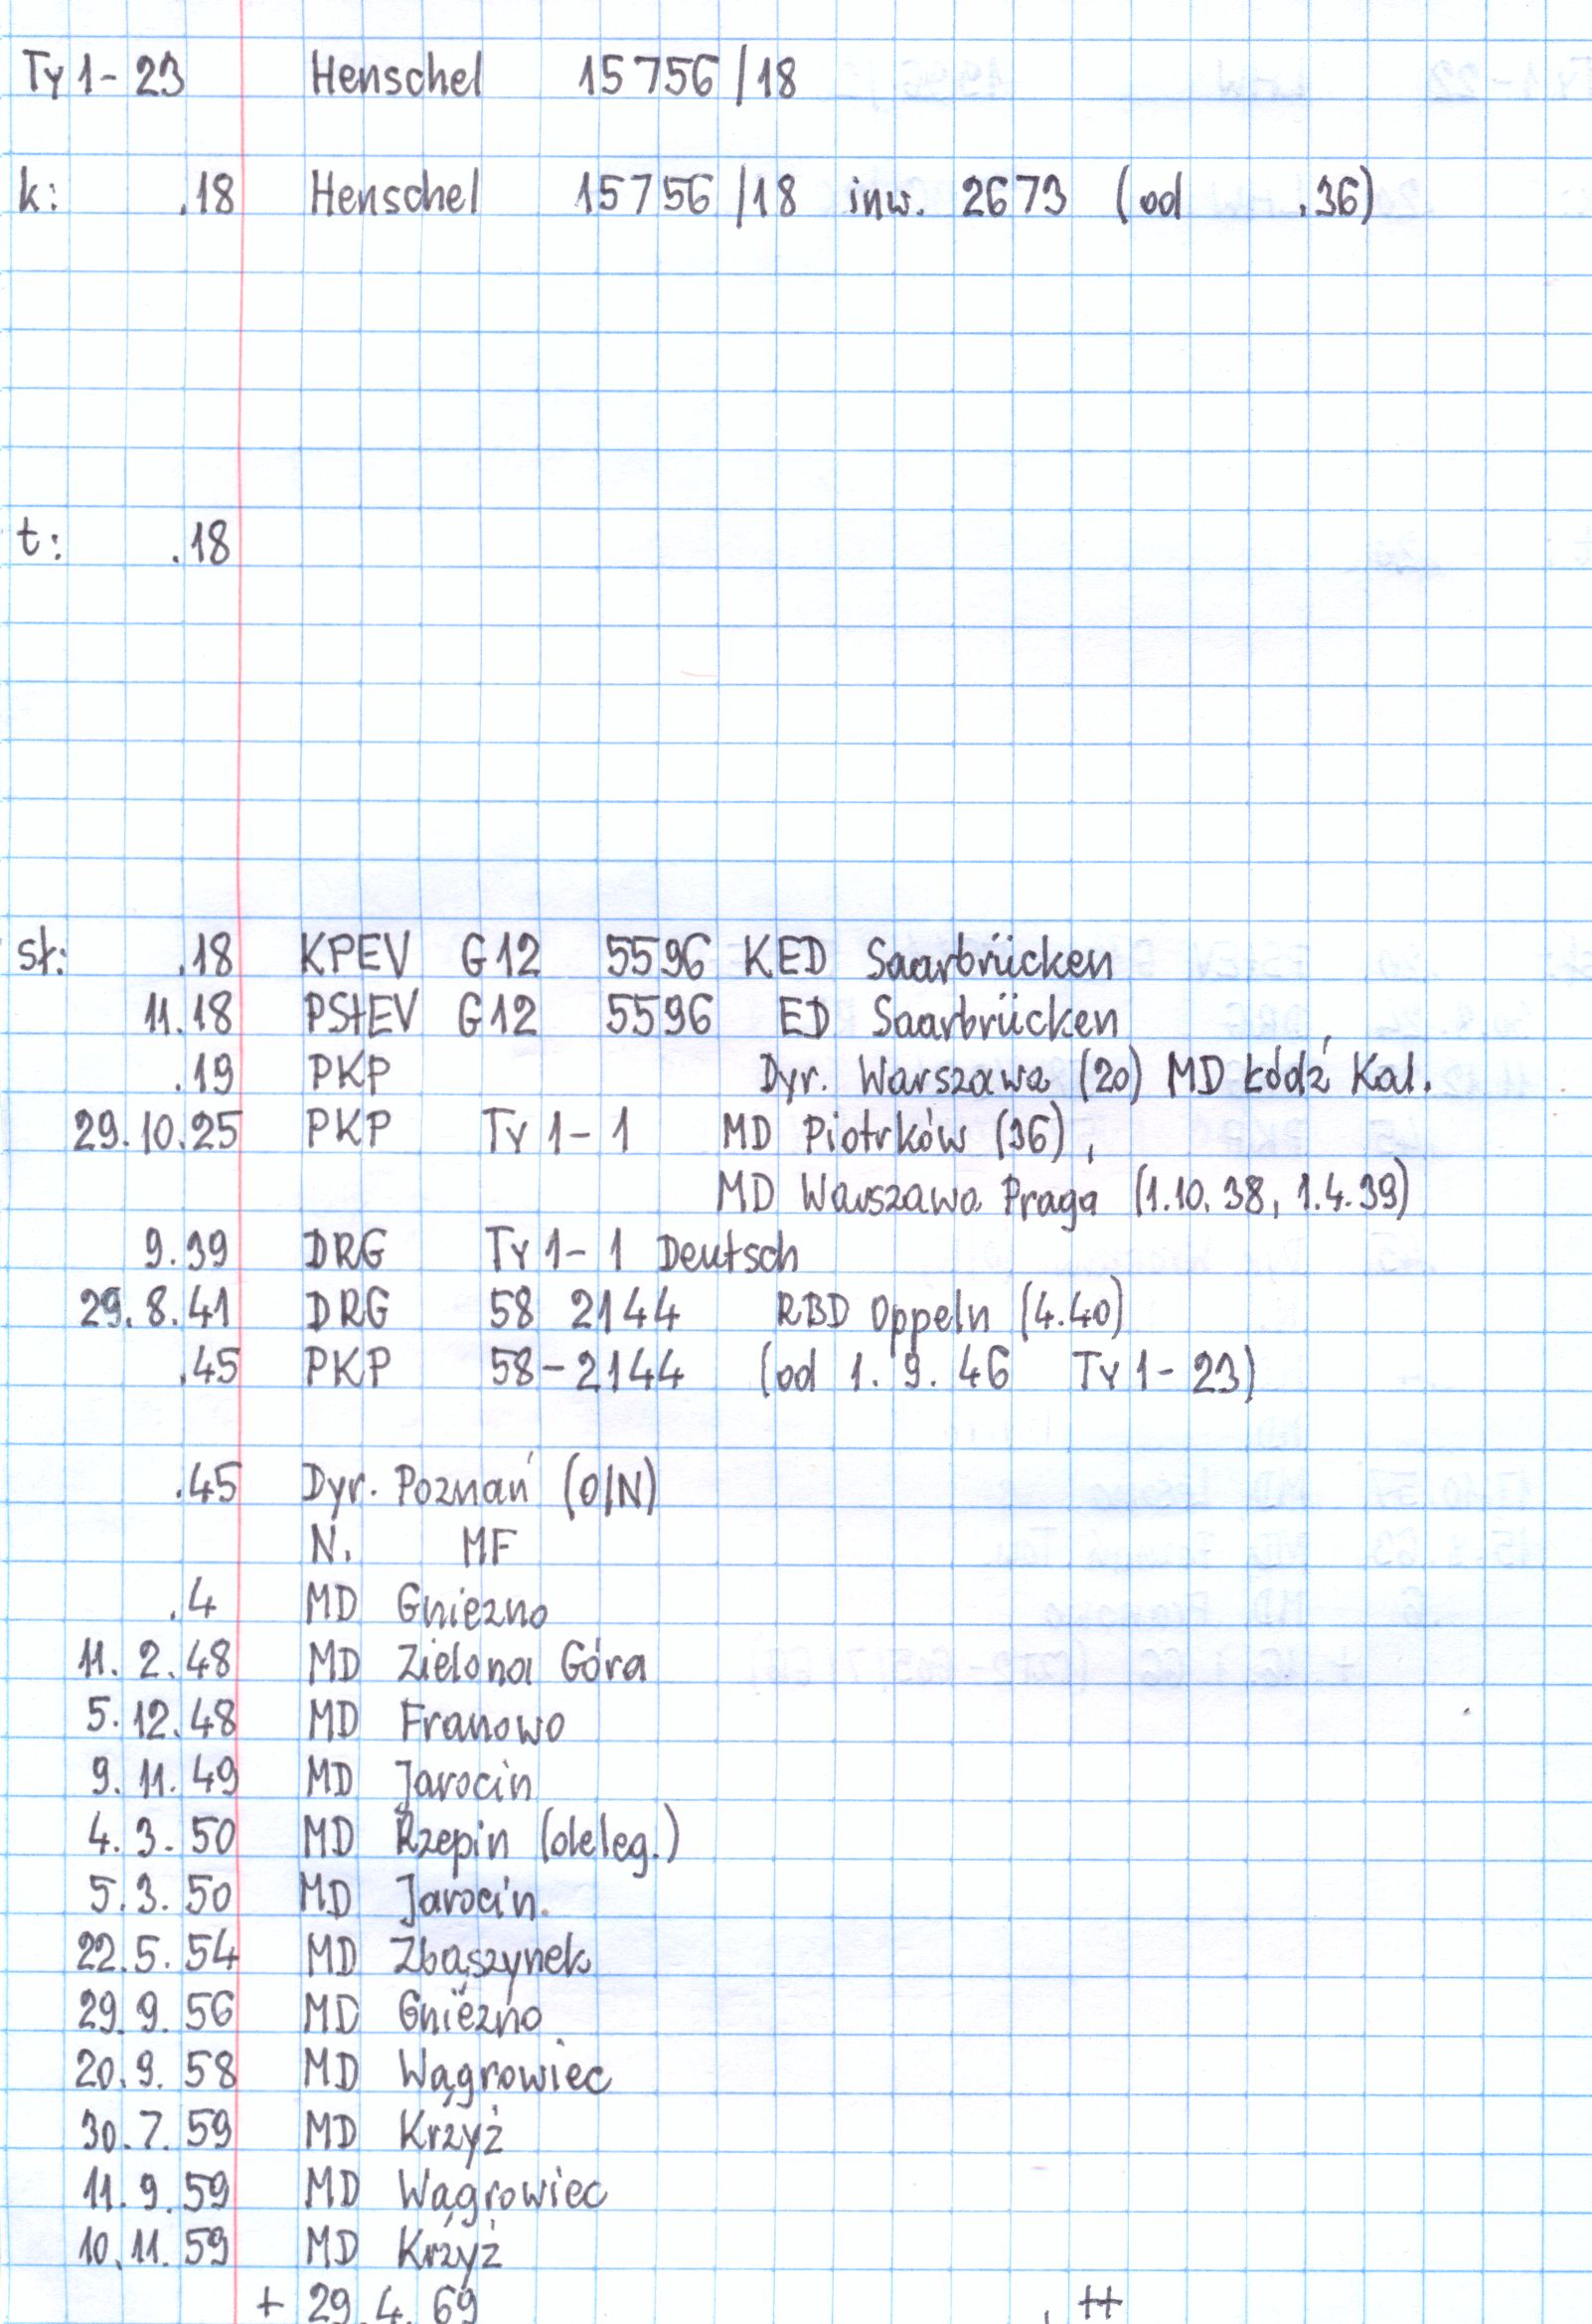 Ty 1-23 Henschel 15756/18
k: .18 Henschel 15756/18 inw. 2673 (od .36)
t: .18
st: .18 KPEV G12 5596 KED Saarbrücken
11.18 PStEV G12 5596 ED Saarbrücken
.19 PKP Dyr. Warszawa (20) MD Łódź Kal.
29.10.25 PKP Ty 1-1 MD Piotrków (36),
MD Warszawa Praga (1.10.38, 1.4.39)
9.39 DRG Ty 1-1 Deutsch
29.8.41 DRG 58 2144 RBD Oppeln (4.40)
.45 PKP 58-2144 (od 1.9.46 Ty 1-23)
.45 Dyr. Poznań (O/N)
N. MF
.4 MD Gniezno
11.2.48 MD Zielona Góra
5.12.48 MD Franowo
9.11.49 MD Jarocin
4.3.50 MD Rzepin (deleg.)
5.3.50 MD Jarocin.
22.5.54 MD Zbąszynek
29.9.56 MD Gniezno
20.9.58 MD Wągrowiec
30.7.59 MD Krzyż
11.9.59 MD Wągrowiec
10.11.59 MD Krzyż
+ 29.4.69 . ++